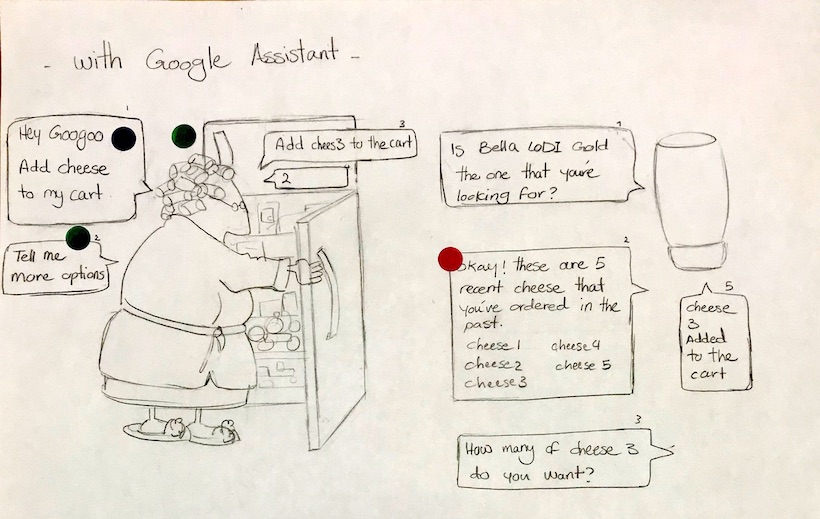 - with Google Assistant -
1
Hey Googoo
Add cheese
to my cart
2
Tell me
more options
3
Add chees3 to the cart
2
1
Is Bella LODI Gold
the one that you're
looking for?
2
okay! these are 5
recent cheese that
you've ordered in the
past.
cheese 1 cheese 4
cheese 2 cheese 5
cheese 3
3
How many of cheese 3
do you want?
5
cheese
3
Added
to the
cart